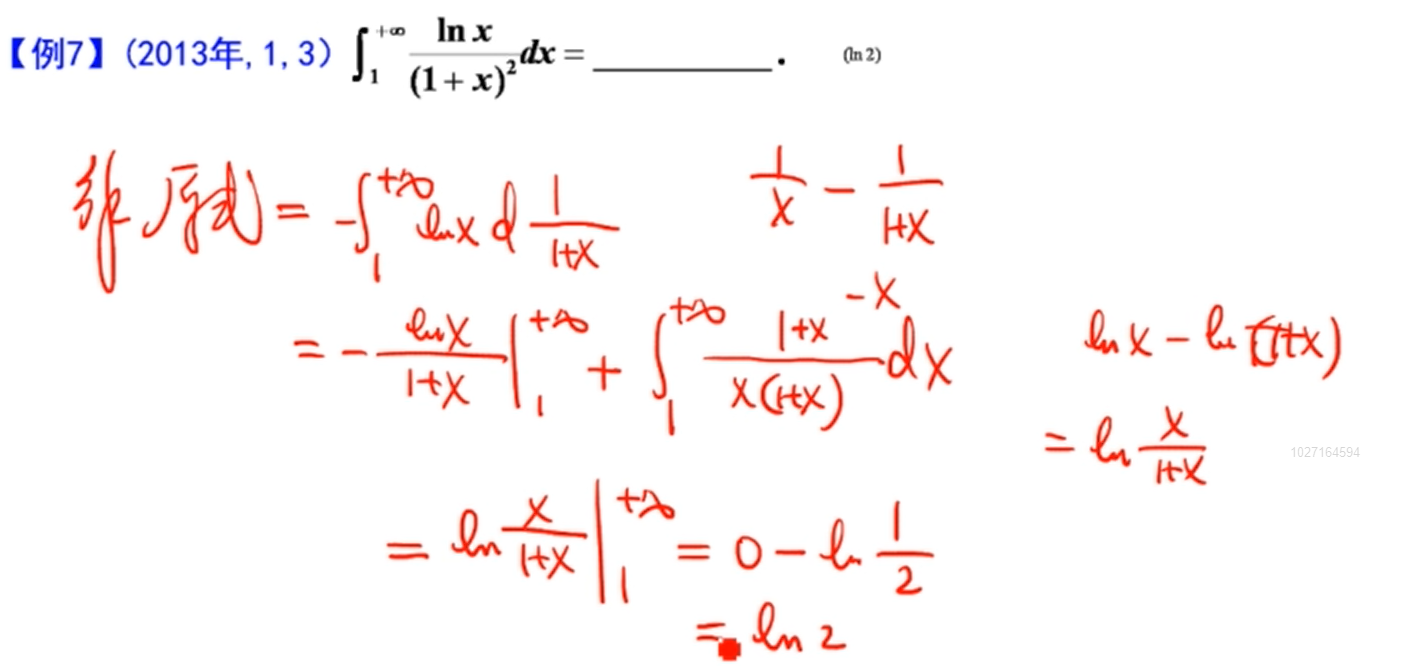 【例7】(2013年, 1, 3) ∫₁^{+∞} \frac{\ln x}{(1+x)^2} dx = ________. (ln 2)
解 原式 = -∫₁^{+∞} ln x d \frac{1}{1+x}
\frac{1}{x} - \frac{1}{1+x}
= -\frac{\ln x}{1+x} |₁^{+∞} + ∫₁^{+∞} \frac{1+x-x}{x(1+x)} dx
ln x - ln (1+x)
= ln \frac{x}{1+x}
1027164594
= ln \frac{x}{1+x} |₁^{+∞} = 0 - ln \frac{1}{2}
= ln 2